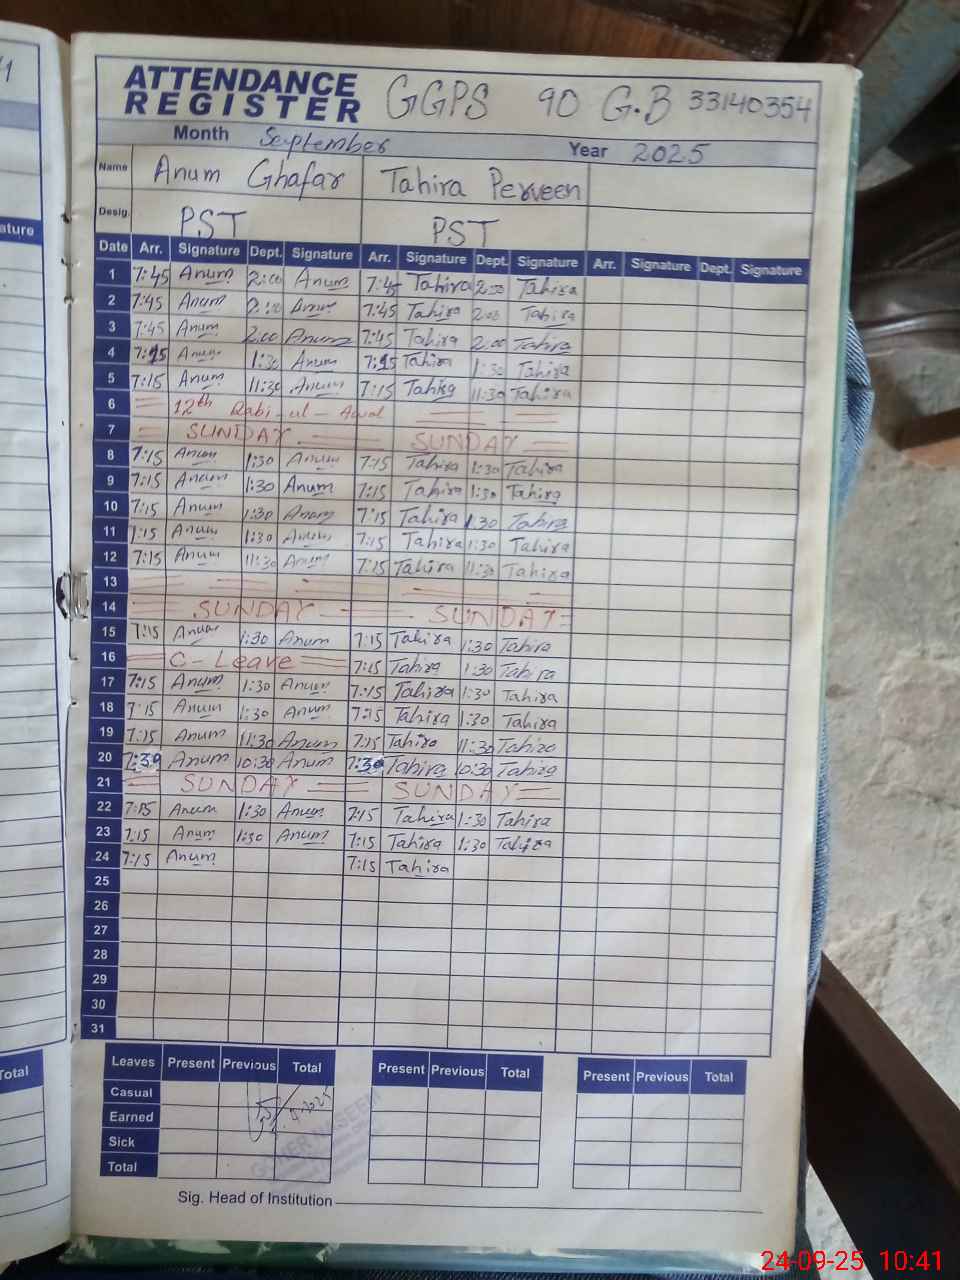 ATTENDANCE REGISTER GGPS 90 G.B 33140354
Month September Year 2025
Name Anum Ghafar Tahira Perveen
Desig. PST PST
Date Arr. Signature Dept. Signature Arr. Signature Dept. Signature Arr. Signature Dept. Signature
1 7:45 Anum 2:00 Anum 7:45 Tahira 2:00 Tahira
2 7:45 Anum 2:00 Anum 7:45 Tahira 2:00 Tahira
3 7:45 Anum 2:00 Anum 7:45 Tahira 2:00 Tahira
4 Anum 1:30 Anum Tahira 1:30 Tahira
5 7:15 Anum 11:30 Anum 7:15 Tahira 11:30 Tahira
6 12th Rabi-ul-Awal
7 SUNDAY SUNDAY
8 7:15 Anum 1:30 Anum 7:15 Tahira 1:30 Tahira
9 7:15 Anum 1:30 Anum 7:15 Tahira 1:30 Tahira
10 7:15 Anum 1:30 Anum 7:15 Tahira 1:30 Tahira
11 7:15 Anum 1:30 Anum 7:15 Tahira 1:30 Tahira
12 7:15 Anum 11:30 Anum 7:15 Tahira 11:30 Tahira
13
14 SUNDAY SUNDAY
15 7:15 Anum 1:30 Anum 7:15 Tahira 1:30 Tahira
16 C-Leave 7:15 Tahira 1:30 Tahira
17 7:15 Anum 1:30 Anum 7:15 Tahira 1:30 Tahira
18 7:15 Anum 1:30 Anum 7:15 Tahira 1:30 Tahira
19 7:15 Anum 11:30 Anum 7:15 Tahira 11:30 Tahira
20 7:30 Anum 10:30 Anum 7:30 Tahira 10:30 Tahira
21 SUNDAY SUNDAY
22 7:15 Anum 1:30 Anum 7:15 Tahira 1:30 Tahira
23 7:15 Anum 1:30 Anum 7:15 Tahira 1:30 Tahira
24 7:15 Anum 7:15 Tahira
25
26
27
28
29
30
31
Leaves Present Previous Total Present Previous Total Present Previous Total
Casual
Earned
Sick
Total
Sig. Head of Institution
ature
Total
24-09-25 10:41